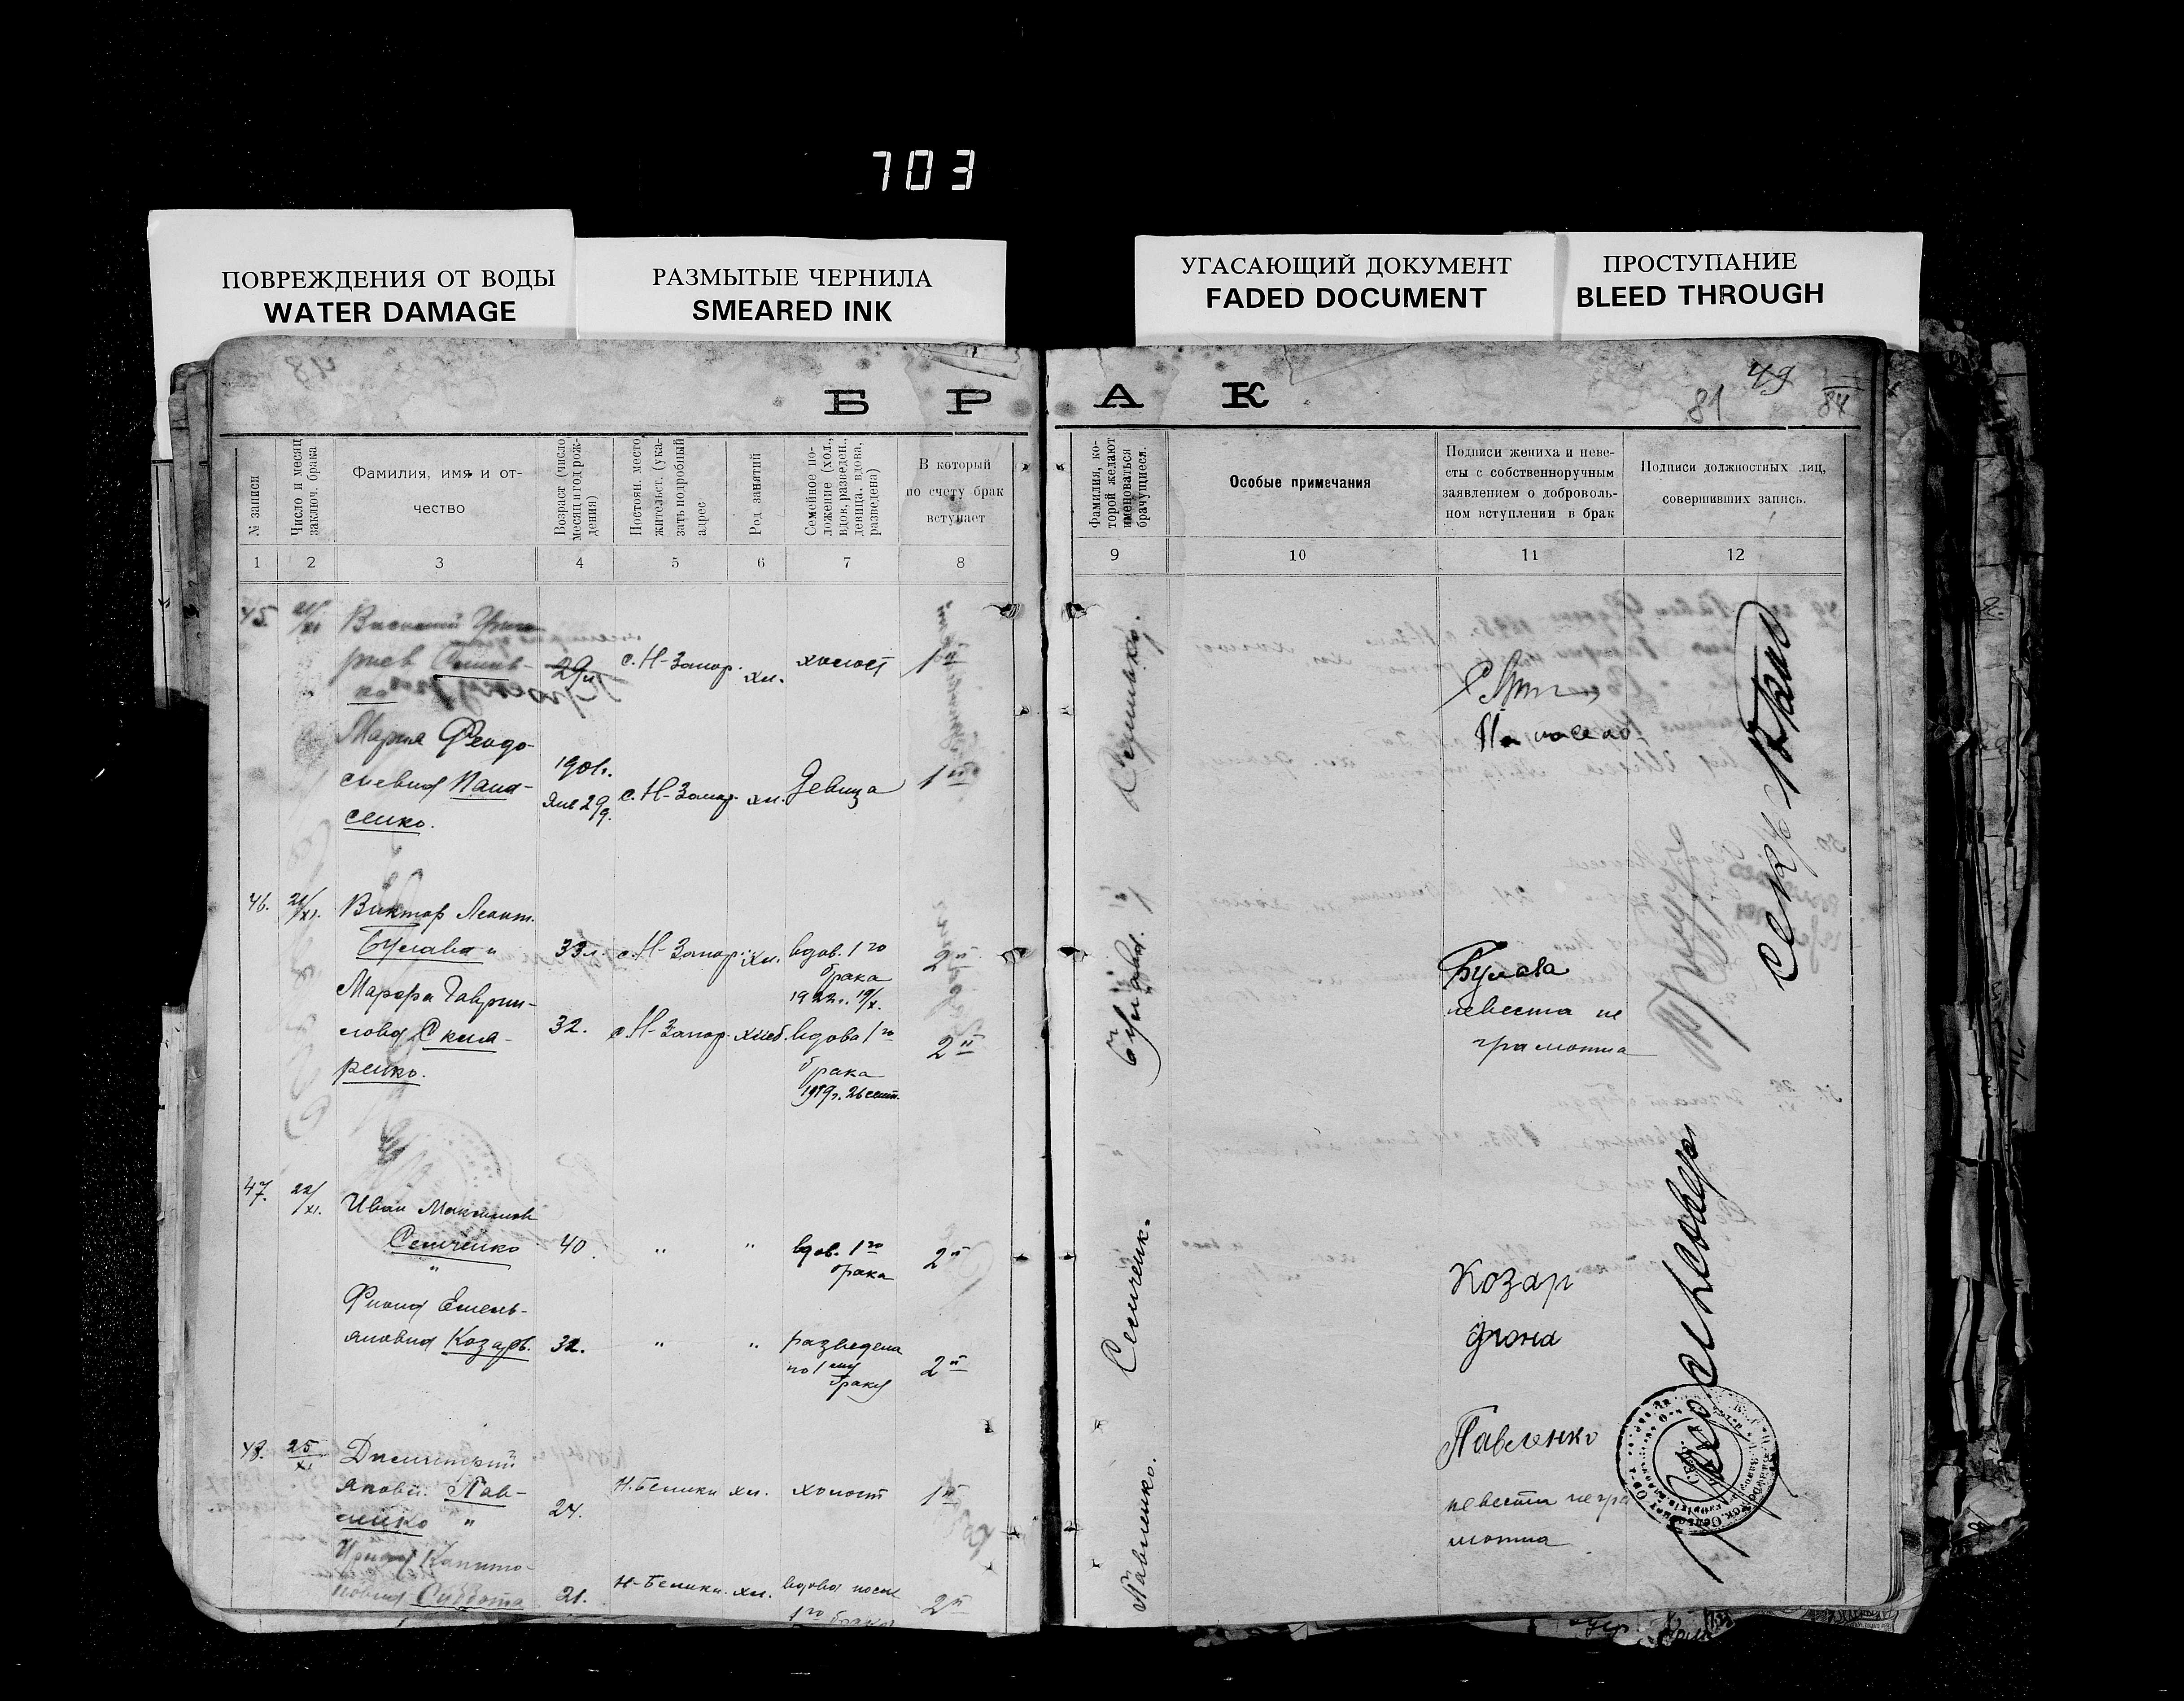 703
ПОВРЕЖДЕНИЯ ОТ ВОДЫ
WATER DAMAGE
РАЗМЫТЫЕ ЧЕРНИЛА
SMEARED INK
УГАСАЮЩИЙ ДОКУМЕНТ
FADED DOCUMENT
ПРОСТУПАНИЕ
BLEED THROUGH
БРАК
49
81
84
№ записи
Число и месяц
заключ. брака
Фамилия, имя и от-
чество
Возраст (число
месяц и год рож-
дения)
Постоян. место
жительст. (ука-
зать подробный
адрес
Род занятий
Семейное по-
ложение (хол.,
вдов, разведен.,
девица, вдова,
разведена)
В который
по счету брак
вступает
Фамилия, ко-
торой желают
именоваться
брачущиеся.
Особые примечания
Подписи жениха и неве-
сты с собственноручным
заявлением о доброволь-
ном вступлении в брак
Подписи должностных лиц,
совершивших запись.
1 2 3 4 5 6 7 8 9 10 11 12
45. 21/XI
29л с. Н-Запор. хл. холост 1й
Мария Феодо-
сиевна Пана-
сенко.
1901г.
Янв 29д. с. Н-Запор. хл. Девица 1й
46. 21/XI. Виктор Леонт.
Булава "
33л. с. Н-Запор. хл. вдов. 1го
брака
1922г. 19/X.
2й
Булава.
Марфа Гаврии-
лова Скля-
ренко.
32. с. Н-Запор. хлеб. вдова 1го
брака
1919г. 26 сент.
2й
Булава
невеста не
грамотна
47. 22/XI. Иван Максимов
Семченко 40. " " вдов. 1го
брака
2й
Семченк.
"
Фиона Емель-
яновна Козарь. 32. " " разведена
по 1му
браку
2й
Козар
фіона
48. 25/XI Димитрий
Яковл. Пав-
ленко " 24. Н. Белики хл. холост 1й
Павленко.
Капито-
новна Суббота 21. Н-Белики. хл. вдова после
1го брака
2й
Павленко
невеста негра
мотна